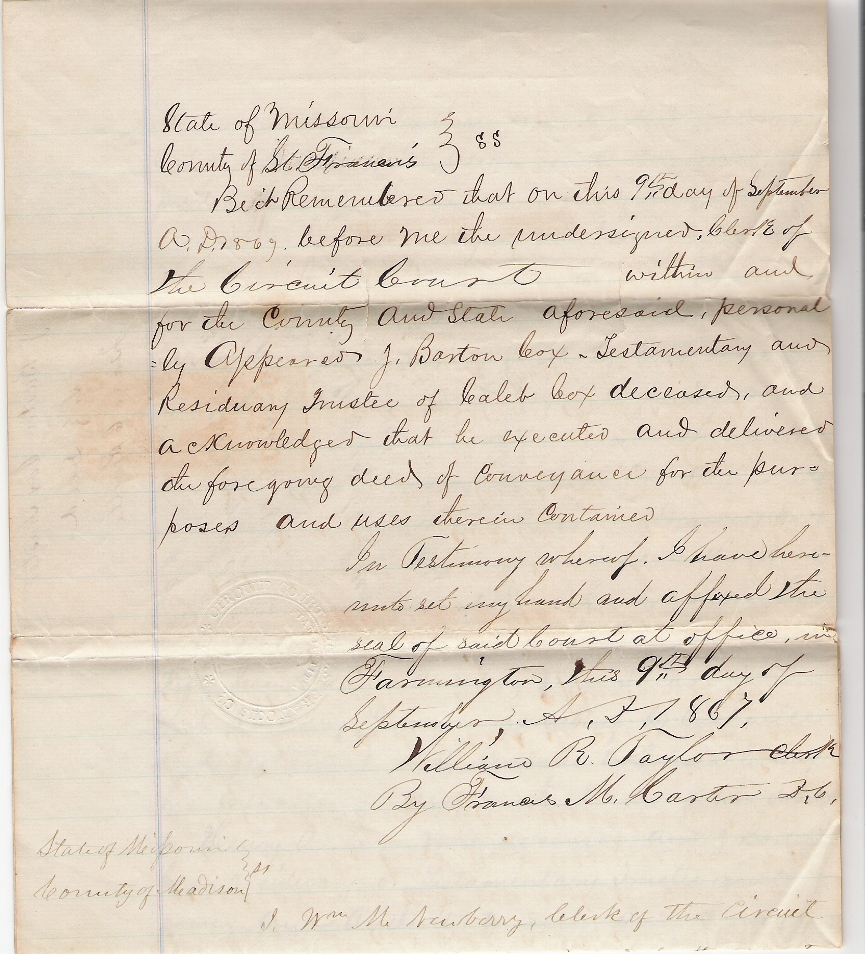 State of Missouri
County of St Francis } SS
Be it Remembered that on this 9th day of September
A.D. 1867. before me the undersigned, Clerk of
the Circuit Court within and
for the County and State aforesaid, personal
=ly Appeared J. Barton Cox - Testamentary and
Residuary Trustee of Caleb Cox deceased, and
acknowledged that he executed and delivered
the foregoing deed of Conveyance for the pur=
poses and uses therein Contained
In Testimony whereof. I have here-
unto set my hand and affixed the
seal of said Court at office, in
Farmington, this 9th day of
September, A, D, 1867,
William R. Taylor Clerk
By Francis M. Carter D,C,
State of Missouri
County of Madison } ss
I. Wm M. Newberry, Clerk of the Circuit